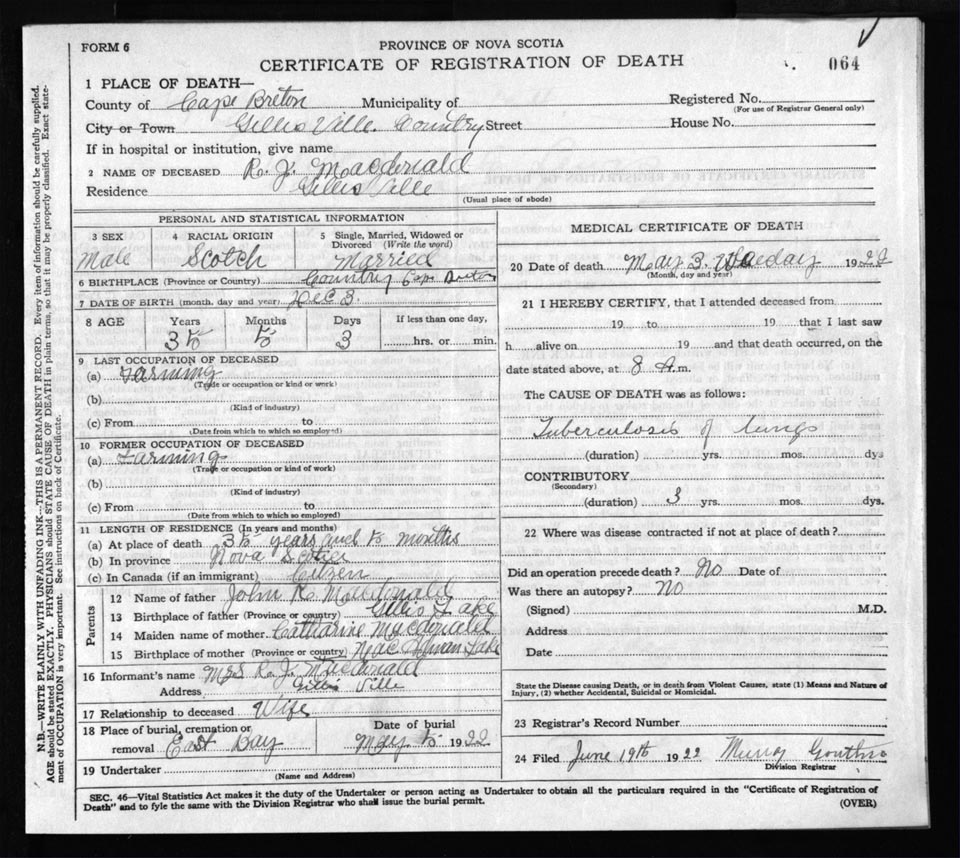 FORM 6
PROVINCE OF NOVA SCOTIA
CERTIFICATE OF REGISTRATION OF DEATH
064
1 PLACE OF DEATH—
County of Cape Breton Municipality of Registered No.
(For use of Registrar General only)
City or Town Gillis Ville Country Street House No.
If in hospital or institution, give name
2 NAME OF DECEASED R. J. Macdonald
Residence Gillis Ville
(Usual place of abode)
PERSONAL AND STATISTICAL INFORMATION
3 SEX 4 RACIAL ORIGIN 5 Single, Married, Widowed or Divorced (Write the word)
Male Scotch Married
6 BIRTHPLACE (Province or Country) Country Cape Breton
7 DATE OF BIRTH (month, day and year) Dec 3.
8 AGE Years Months Days If less than one day,
35 5 3 hrs. or min.
9 LAST OCCUPATION OF DECEASED
(a) Farming
(Trade or occupation or kind or work)
(b)
(Kind of industry)
(c) From to
(Date from which to which so employed)
10 FORMER OCCUPATION OF DECEASED
(a) Farming
(Trade or occupation or kind of work)
(b)
(Kind of industry)
(c) From to
(Date from which to which so employed)
11 LENGTH OF RESIDENCE (In years and months)
(a) At place of death 35 years and 5 months
(b) In province Nova Scotia
(c) In Canada (if an immigrant) Citizen
Parents
12 Name of father John R. McDonald
13 Birthplace of father (Province or country) Gillis Lake
14 Maiden name of mother Catharine Macdonald
15 Birthplace of mother (Province or country) Mac Lake
16 Informant's name Mrs R. J. Macdonald
Address Gillis Ville
17 Relationship to deceased Wife
18 Place of burial, cremation or removal East Bay
Date of burial
May 5 1922
19 Undertaker
(Name and Address)
MEDICAL CERTIFICATE OF DEATH
20 Date of death May 3. 192
(Month, day and year)
21 I HEREBY CERTIFY, that I attended deceased from
19 to 19 that I last saw
h alive on 19 and that death occurred, on the
date stated above, at 8 A.m.
The CAUSE OF DEATH was as follows:
Tuberculosis of Lungs
(duration) yrs. mos. dys
CONTRIBUTORY
(Secondary)
(duration) 3 yrs. mos. dys.
22 Where was disease contracted if not at place of death?
Did an operation precede death? No Date of
Was there an autopsy? No
(Signed) M.D.
Address
Date
State the Disease causing Death, or in death from Violent Causes, state (1) Means and Nature of
Injury, (2) whether Accidental, Suicidal or Homicidal.
23 Registrar's Record Number
24 Filed June 19th 1922
Division Registrar
SEC. 46—Vital Statistics Act makes it the duty of the Undertaker or person acting as Undertaker to obtain all the particulars required in the "Certificate of Registration of
Death" and to fyle the same with the Division Registrar who shall issue the burial permit.
(OVER)
N.B.—WRITE PLAINLY WITH UNFADING INK—THIS IS A PERMANENT RECORD. Every item of information should be carefully supplied.
AGE should be stated EXACTLY. PHYSICIANS should STATE CAUSE OF DEATH in plain terms, so that it may be properly classified. Exact statement of OCCUPATION is very important. See instructions on back of Certificate.